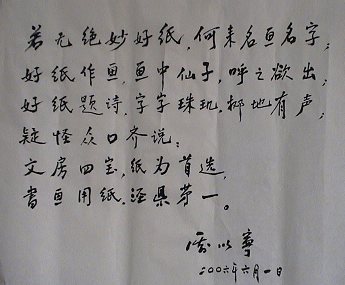 若无绝妙好纸,何来名画名字;
好纸作画,画中仙子,呼之欲出;
好纸题诗,字字珠玑,掷地有声;
疑怪众口齐说:
文房四宝,纸为首选,
书画用纸,泾县第一。
云以寧
二00六年六月一日